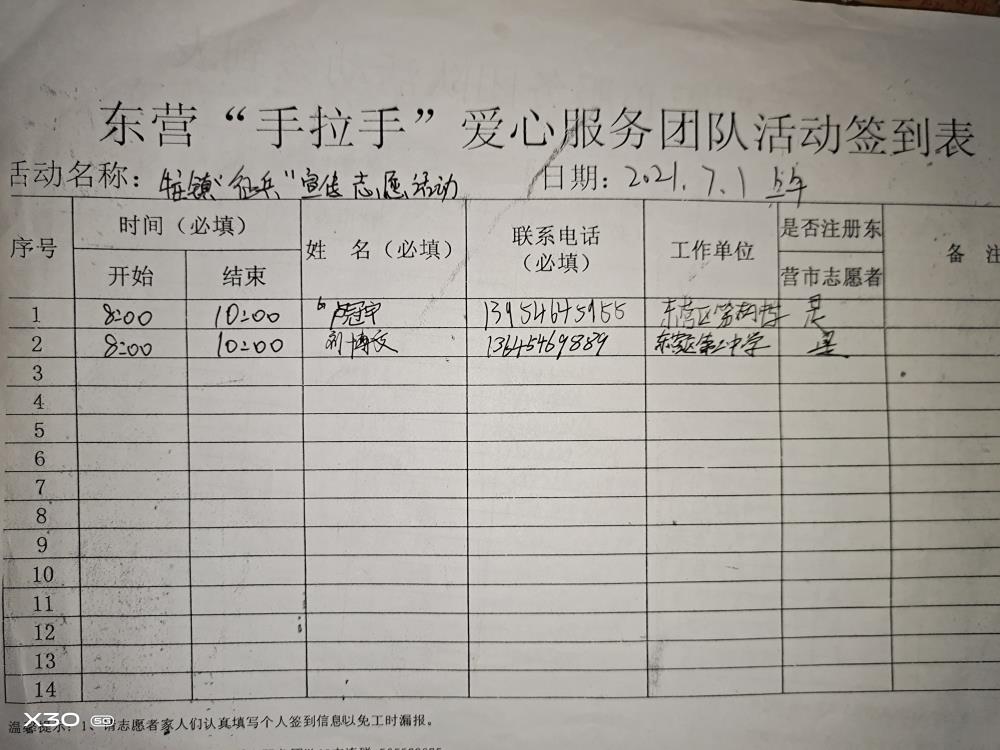 东营“手拉手”爱心服务团队活动签到表
活动名称：镇“征兵”宣传志愿活动 日期：2021.7.1
序号 时间（必填） 姓 名（必填） 联系电话（必填） 工作单位 是否注册东营市志愿者 备 注
开始 结束
1 8:00 10:00 卢冠宇 13954645955 东营区 是
2 8:00 10:00 刘博 13645469889 东营区第二中学 是
3
4
5
6
7
8
9
10
11
12
13
14
温馨提示：1、请志愿者家人们认真填写个人签到信息以免工时漏报。
X30 5G